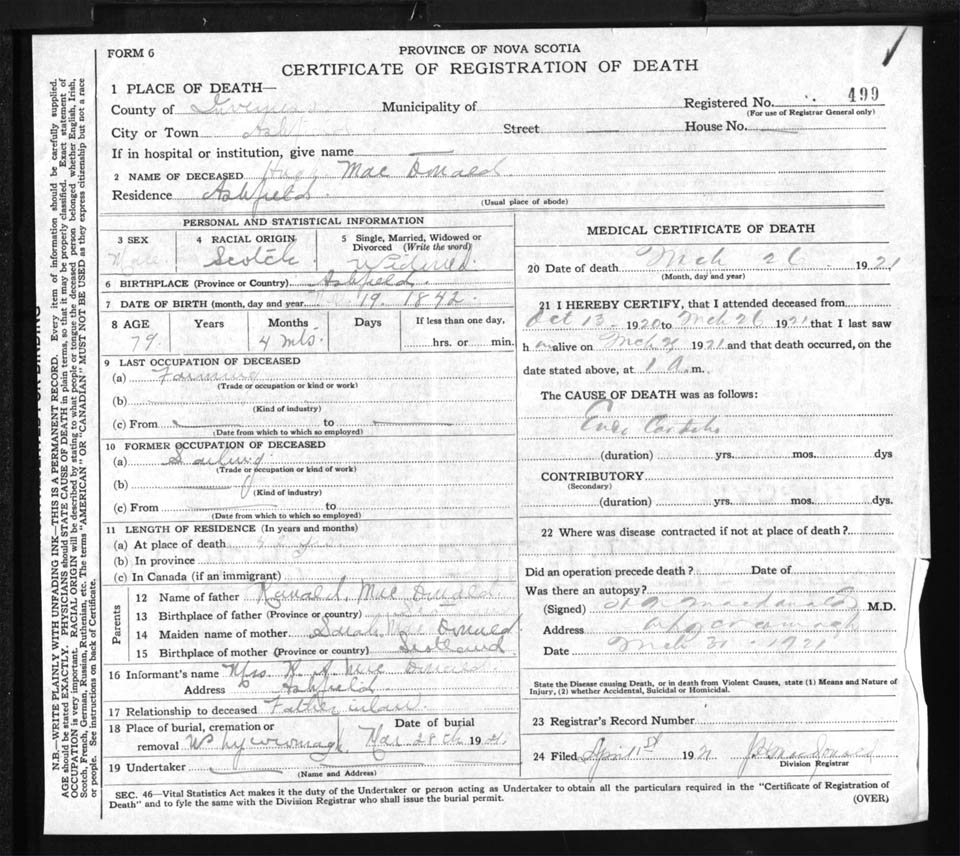 FORM 6
PROVINCE OF NOVA SCOTIA
CERTIFICATE OF REGISTRATION OF DEATH
1 PLACE OF DEATH—
County of Inverness Municipality of Registered No. 499
(For use of Registrar General only)
City or Town Ash Street House No.
If in hospital or institution, give name
2 NAME OF DECEASED Mac Donald
Residence Ashfield
(Usual place of abode)
PERSONAL AND STATISTICAL INFORMATION
3 SEX
Male
4 RACIAL ORIGIN
Scotch
5 Single, Married, Widowed or
Divorced (Write the word)
Widowed
6 BIRTHPLACE (Province or Country) Ashfield
7 DATE OF BIRTH (month, day and year 19. 1842.
8 AGE Years Months Days If less than one day,
79. 4 mts. hrs. or min.
9 LAST OCCUPATION OF DECEASED
(a) Farming
(Trade or occupation or kind or work)
(b)
(Kind of industry)
(c) From to
(Date from which to which so employed)
10 FORMER OCCUPATION OF DECEASED
(a)
(Trade or occupation or kind of work)
(b)
(Kind of industry)
(c) From to
(Date of from which to which so employed)
11 LENGTH OF RESIDENCE (In years and months)
(a) At place of death
(b) In province
(c) In Canada (if an immigrant)
Parents
12 Name of father Mac Donald
13 Birthplace of father (Province or country)
14 Maiden name of mother Sarah Mac Donald
15 Birthplace of mother (Province or country) Scotland
16 Informant's name Mrs Mac Donald
Address Ashfield
17 Relationship to deceased Father in law
18 Place of burial, cremation or Date of burial
removal Whycocomagh Mar 28th 1921
19 Undertaker
(Name and Address)
MEDICAL CERTIFICATE OF DEATH
20 Date of death Mch 26 1921
(Month, day and year)
21 I HEREBY CERTIFY, that I attended deceased from
Oct 13 1920 to Mch 26 1921 that I last saw
h alive on Mch 1921 and that death occurred, on the
date stated above, at 1 a.m.
The CAUSE OF DEATH was as follows:
(duration) yrs. mos. dys
CONTRIBUTORY
(Secondary)
(duration) yrs. mos. dys.
22 Where was disease contracted if not at place of death?
Did an operation precede death? Date of
Was there an autopsy?
(Signed) Macdonald M.D.
Address Whycocomagh
Date Mch 31 1921
State the Disease causing Death, or in death from Violent Causes, state (1) Means and Nature of
Injury, (2) whether Accidental, Suicidal or Homicidal.
23 Registrar's Record Number
24 Filed 192 MacDonald
Division Registrar
SEC. 46—Vital Statistics Act makes it the duty of the Undertaker or person acting as Undertaker to obtain all the particulars required in the "Certificate of Registration of
Death" and to fyle the same with the Division Registrar who shall issue the burial permit.
(OVER)
N.B.—WRITE PLAINLY WITH UNFADING INK—THIS IS A PERMANENT RECORD. Every item of information should be carefully supplied.
AGE should be stated EXACTLY. PHYSICIANS should STATE CAUSE OF DEATH in plain terms, so that it may be properly classified. Exact statement of
OCCUPATION is very important. RACIAL ORIGIN will be described by stating to what people or tongue the deceased person belonged whether English, Irish,
Scotch, French, German, Russian, Ruthenian, etc. The terms "AMERICAN" OR "CANADIAN" MUST NOT BE USED as they express citizenship but not a race
or people. See instructions on back of Certificate.